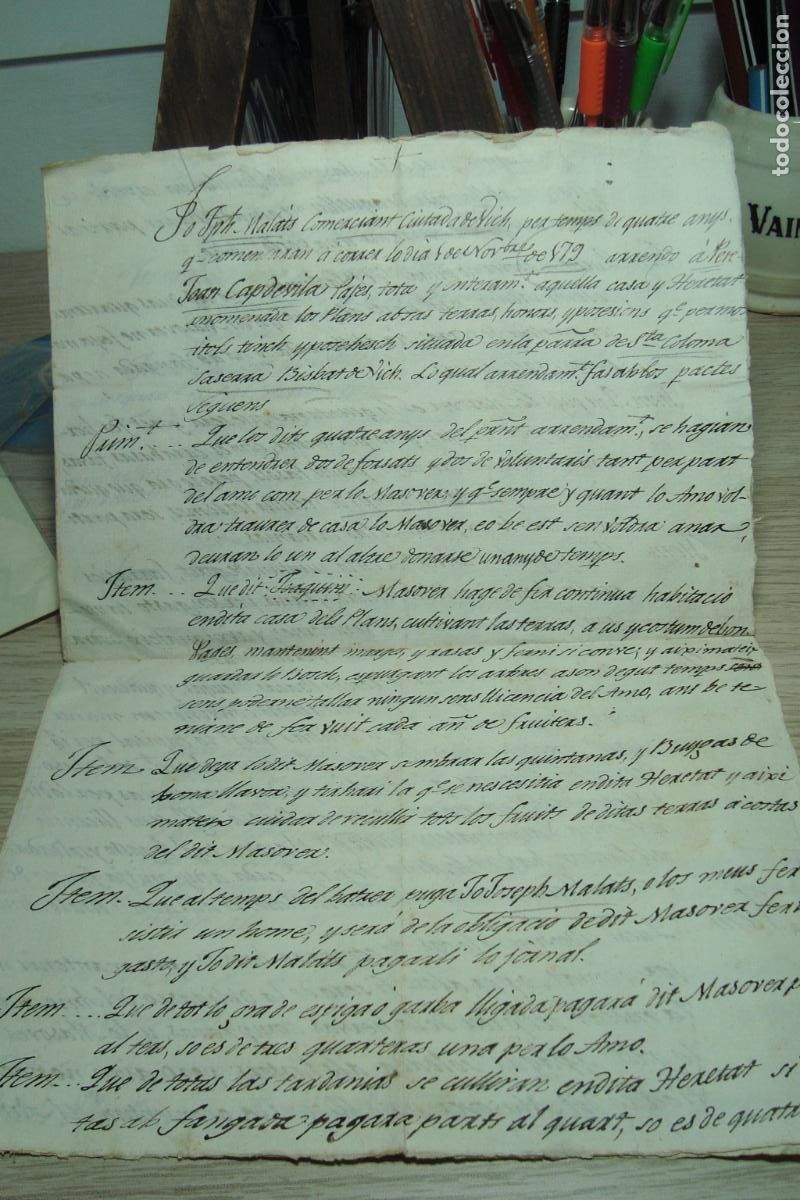 Jo Jph. Malats Comerciant Ciutada de Vich, per temps de quatre anys.
qe comensaran á correr lo dia 1 de Novbre de 179 arrendo á Pere
Joan Capdevila Pajes, tota y interamt. aquella casa y Heretat
anomenada los Plans abras terras, honors, y possesions qe. per mos
titols tinch, y possehesch situada en la parrā. de Sta. Coloma
Saserra Bisbat de Vich. Lo qual arrendamt. fas ab los pactes
seguens
Primt. ... Que los dits quatre anys del pñt arrendamt., se hagian
de entendrer dos de forsats y dos de voluntaris tant per part
del amo com per lo Masover, y qe. sempre y quant lo Amo vol-
dra traurer de casa lo Masover, eo be est sen voldra anar,
deuran lo un al altre donarse un any de temps.
Item. ... Que dit Masover hage de fer continua habitacio
en dita casa dels Plans, cultivant las terras, a us y costum de bon
Pages, mantenint margs, y rasas y ferni si conve, y aixi mateix
guardar lo Bosch, esporgant los arbres a son degut temps
sens poderne tallar ningun sens llicencia del Amo, ans be te-
nirne de fer vuit cada añ de fruiters.
Item Que dega lo dit Masover sembrar las quintanas, y Buygas de
bona llavor, y terhari la qe. se nescesitia en dita Heretat y aixi
mateix cuidar de recullir tots los fruits de ditas terras á costas
del dit Masover.
Item. Que al temps del batrer puga Jo Joseph Malats, o los meus fer
sistir un home, y será de la obligacio de dit Masover ferli
gasto, y Jo dit Malats pagarli lo jornal.
Item ... Que de tot lo gra de espiga ó garba lligada pagará dit Masover p
al ters, so es de tres quarteras una per lo Amo.
Item... Que de totas las tardanias se culliran en dita Heretat si
tas ab fangada pagara parts al quart, so es de quatr
todocoleccion
VAIN